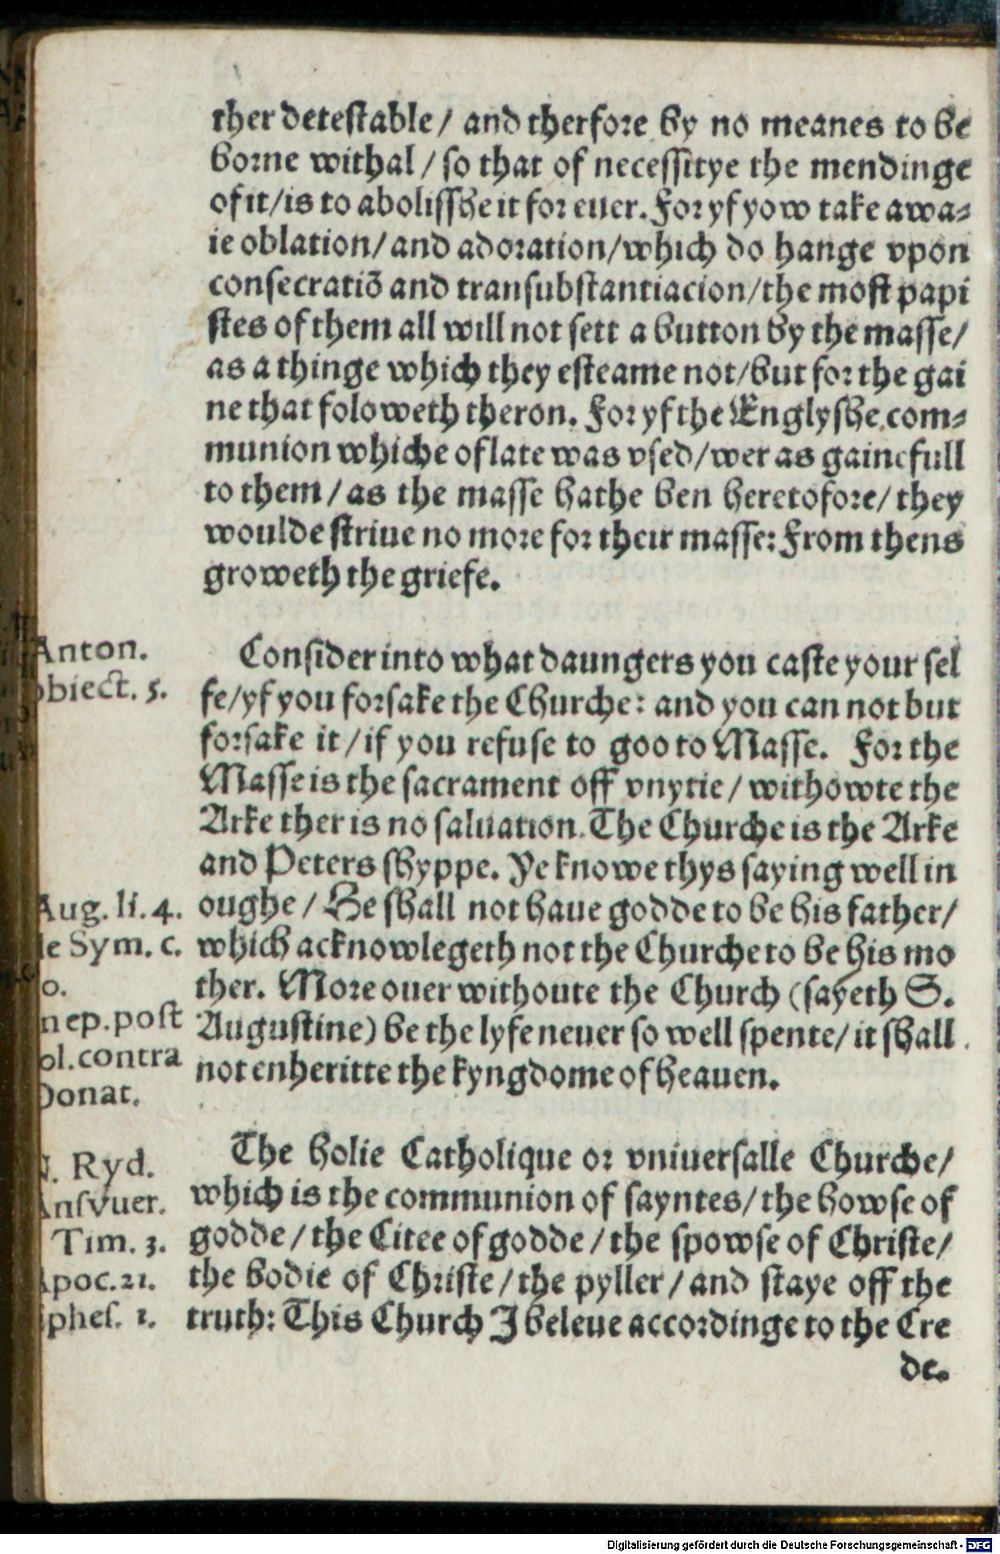 ther detestable/ and therfore by no meanes to be
borne withal/so that of necessitye the mendinge
of it/is to abolisshe it for euer. For yf yow take awa⸗
ie oblation/and adoration/which do hange vpon
consecratiō and transubstantiacion/the most papi
stes of them all will not sett a button by the masse/
as a thinge which they esteame not/but for the gai
ne that foloweth theron. For yf the Englyshe com⸗
munion whiche of late was vsed/wer as gainefull
to them/as the masse hathe ben heretofore/they
woulde striue no more for their masse: From thens
groweth the griefe.
Anton.
obiect. 5.
Consider into what daungers you caste your sel
fe/yf you forsake the Churche: and you can not but
forsake it/if you refuse to goo to Masse. For the
Masse is the sacrament off vnytie/withowte the
Arke ther is no saluation. The Churche is the Arke
and Peters shyppe. Ye knowe thys saying well in
oughe/ He shall not haue godde to be his father/
which acknowlegeth not the Churche to be his mo
ther. Moreouer withoute the Church (sayeth S.
Augustine) be the lyfe neuer so well spente/it shall
not enheritte the kyngdome of heauen.
Aug. li. 4.
de Sym. c.
o.
n ep. post
ol. contra
Donat.
The holie Catholique or vniuersalle Churche/
which is the communion of sayntes/the howse of
godde/the Citee of godde/the spowse of Christe/
the bodie of Christe/the pyller/and staye off the
truth: This Church I beleue accordinge to the Cre
de.
N. Ryd.
Ansvuer.
Tim. 3.
Apoc. 21.
Ephes. 1.
Digitalisierung gefördert durch die Deutsche Forschungsgemeinschaft - DFG